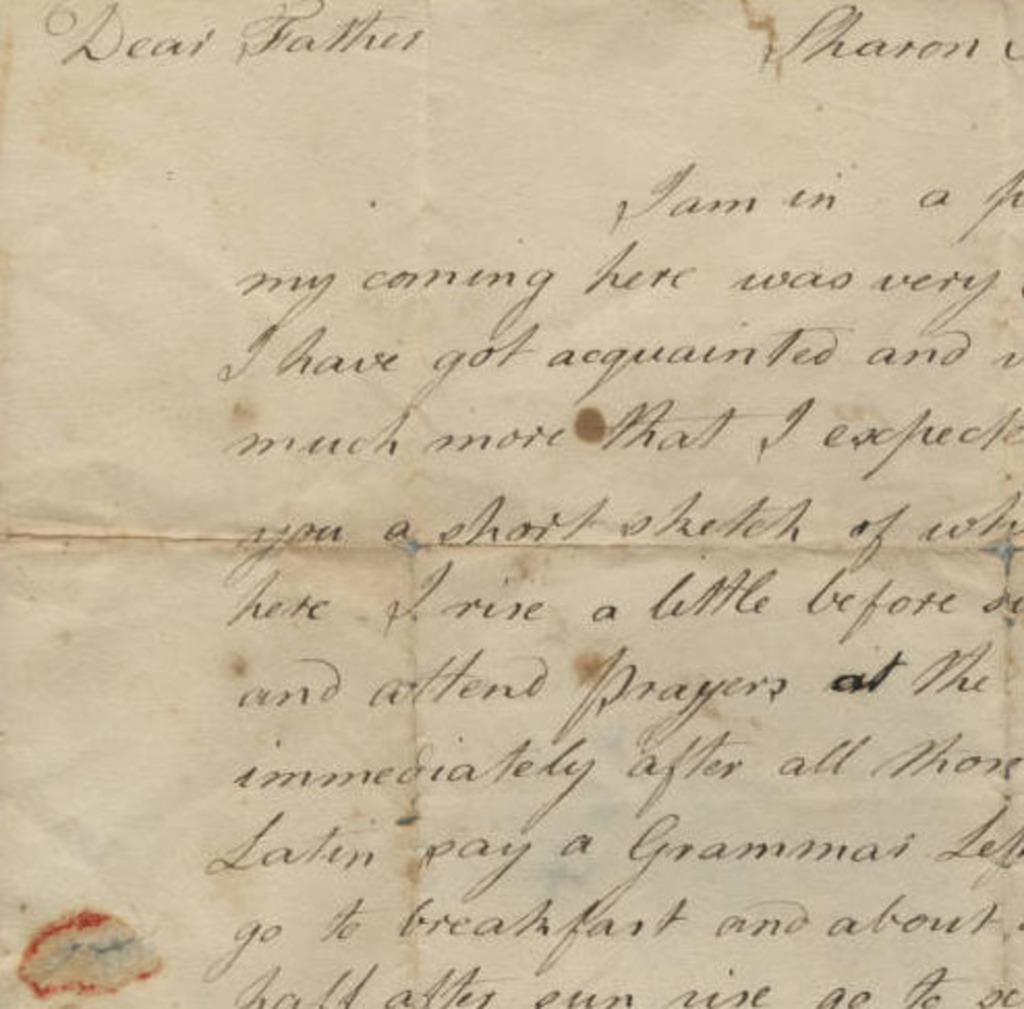 Dear Father Sharon
I am in a
my coming here was very
I have got acquainted and
much more that I expect
you a short sketch of
here I rise a little before
and attend prayers at the
immediately after all those
Latin say a Grammar
go to breakfast and about
half after sun rise go to